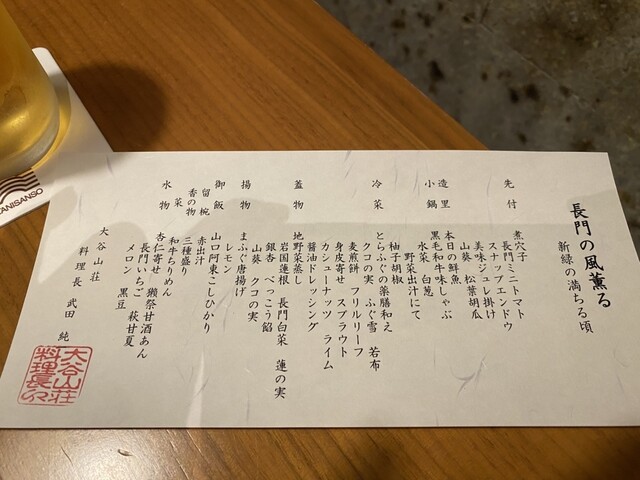 長門の風薫る
新緑の満ちる頃
先付
煮穴子
長門ミニトマト
スナップエンドウ
美味ジュレ掛け
造里
山葵 松葉胡瓜
本日の鮮魚
小鍋
黒毛和牛味しゃぶ
水菜 白葱
野菜出汁にて
冷菜
柚子胡椒
とらふぐの薬膳和え
クコの実 ふぐ雪 若布
麦煎餅 フリルリーフ
身皮寄せ スプラウト
カシューナッツ ライム
醤油ドレッシング
蓋物
地野菜蒸し
岩国蓮根 長門白菜 蓮の実
銀杏 べっこう餡
山葵 クコの実
揚物
まふぐ唐揚げ
レモン
御飯
山口阿東こしひかり
留椀
赤出汁
香の物
三種盛り
菜
和牛ちりめん
水物
杏仁寄せ 獺祭甘酒あん
長門いちご 萩甘夏
メロン 黒豆
大谷山荘
料理長 武田 純
大谷山荘
料理長
TANISANSO